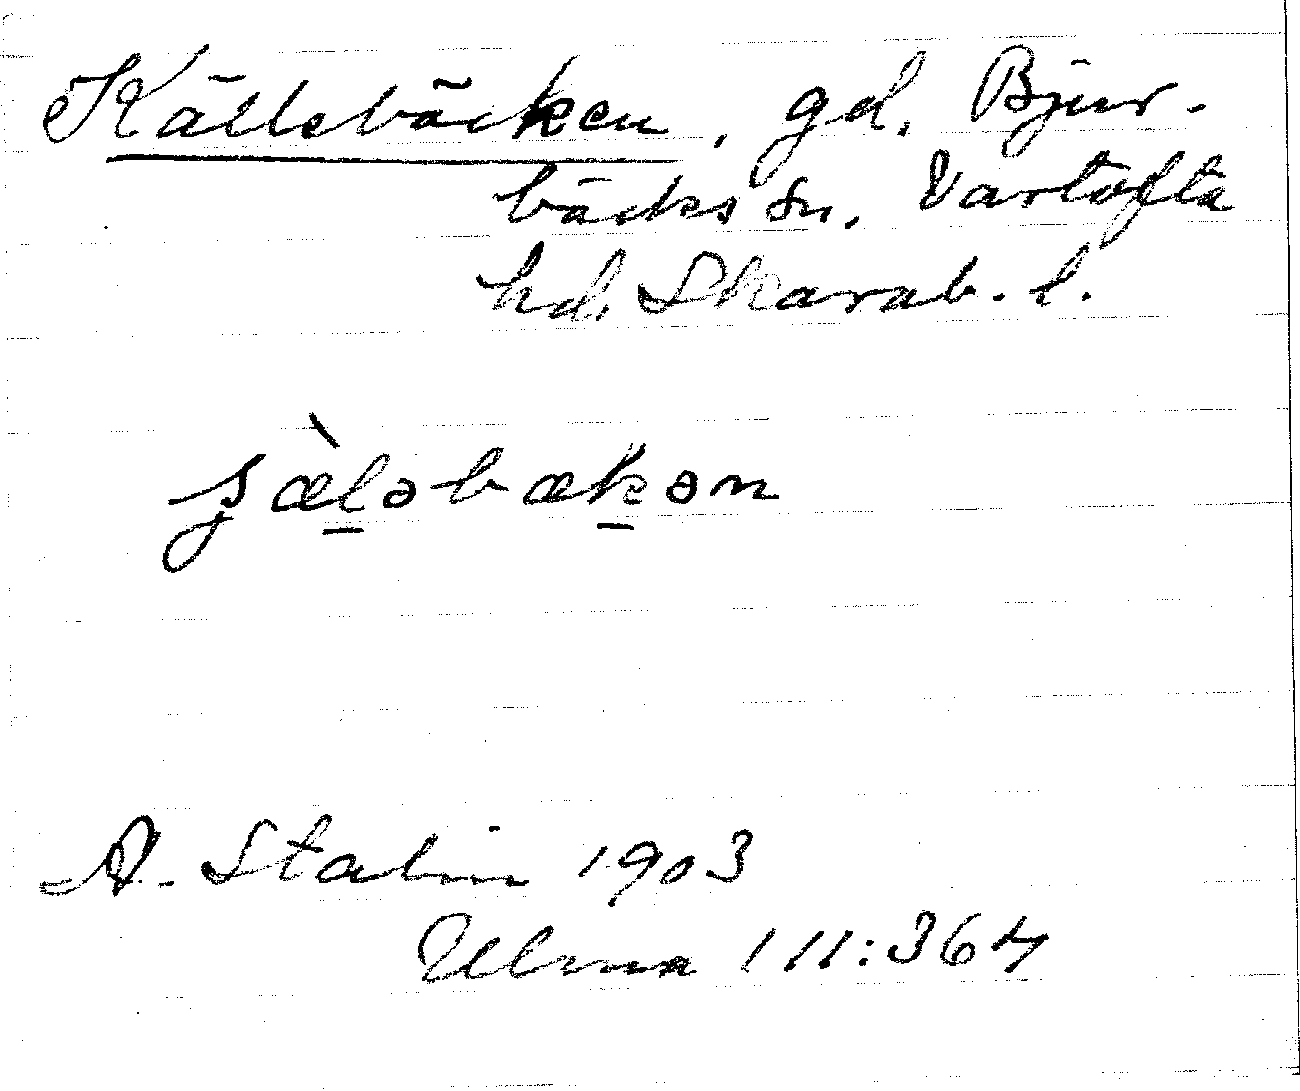 Källebäcken, gd. Bjur-
bäcks sn. Vartofta
hd. Skarab. l.
A. Stalin 1903
Ulma 111:364